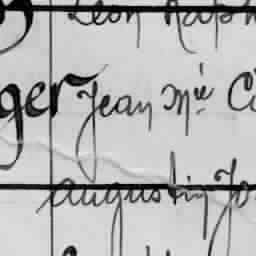 Léon Raph
ger Jean Mie C
augustin Jo